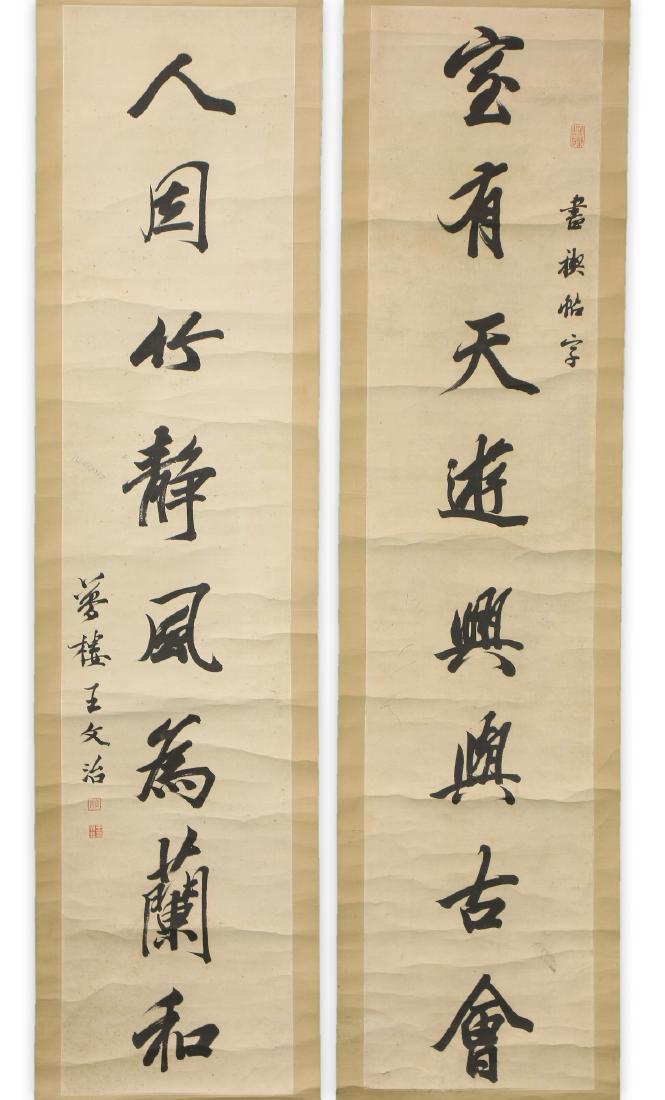 書禊帖字
室有天遊興與古會
人因竹靜風為蘭和
夢樓王文治